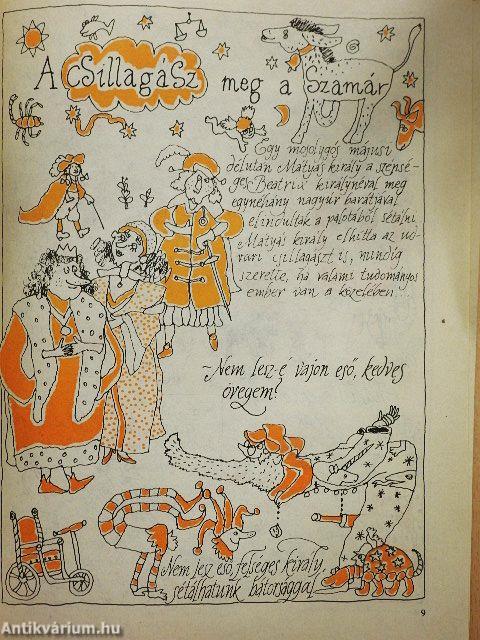 A Csillagász meg a Szamár
Egy mosolygós májusi
délután Mátyás király a szépsé-
ges Beatrix királynéval meg
egynéhány nagyúr barátjával
elindultak a palotából sétálni
Mátyás király elhítta az ud-
vari csillagászt is, mindig
szerette, ha valami tudományos
ember van a közelében...
-Nem lesz-é vajon eső, kedves
övegem?
Nem lesz eső, felséges király,
sétálhatunk bátorsággal
9
Antikvárium.hu